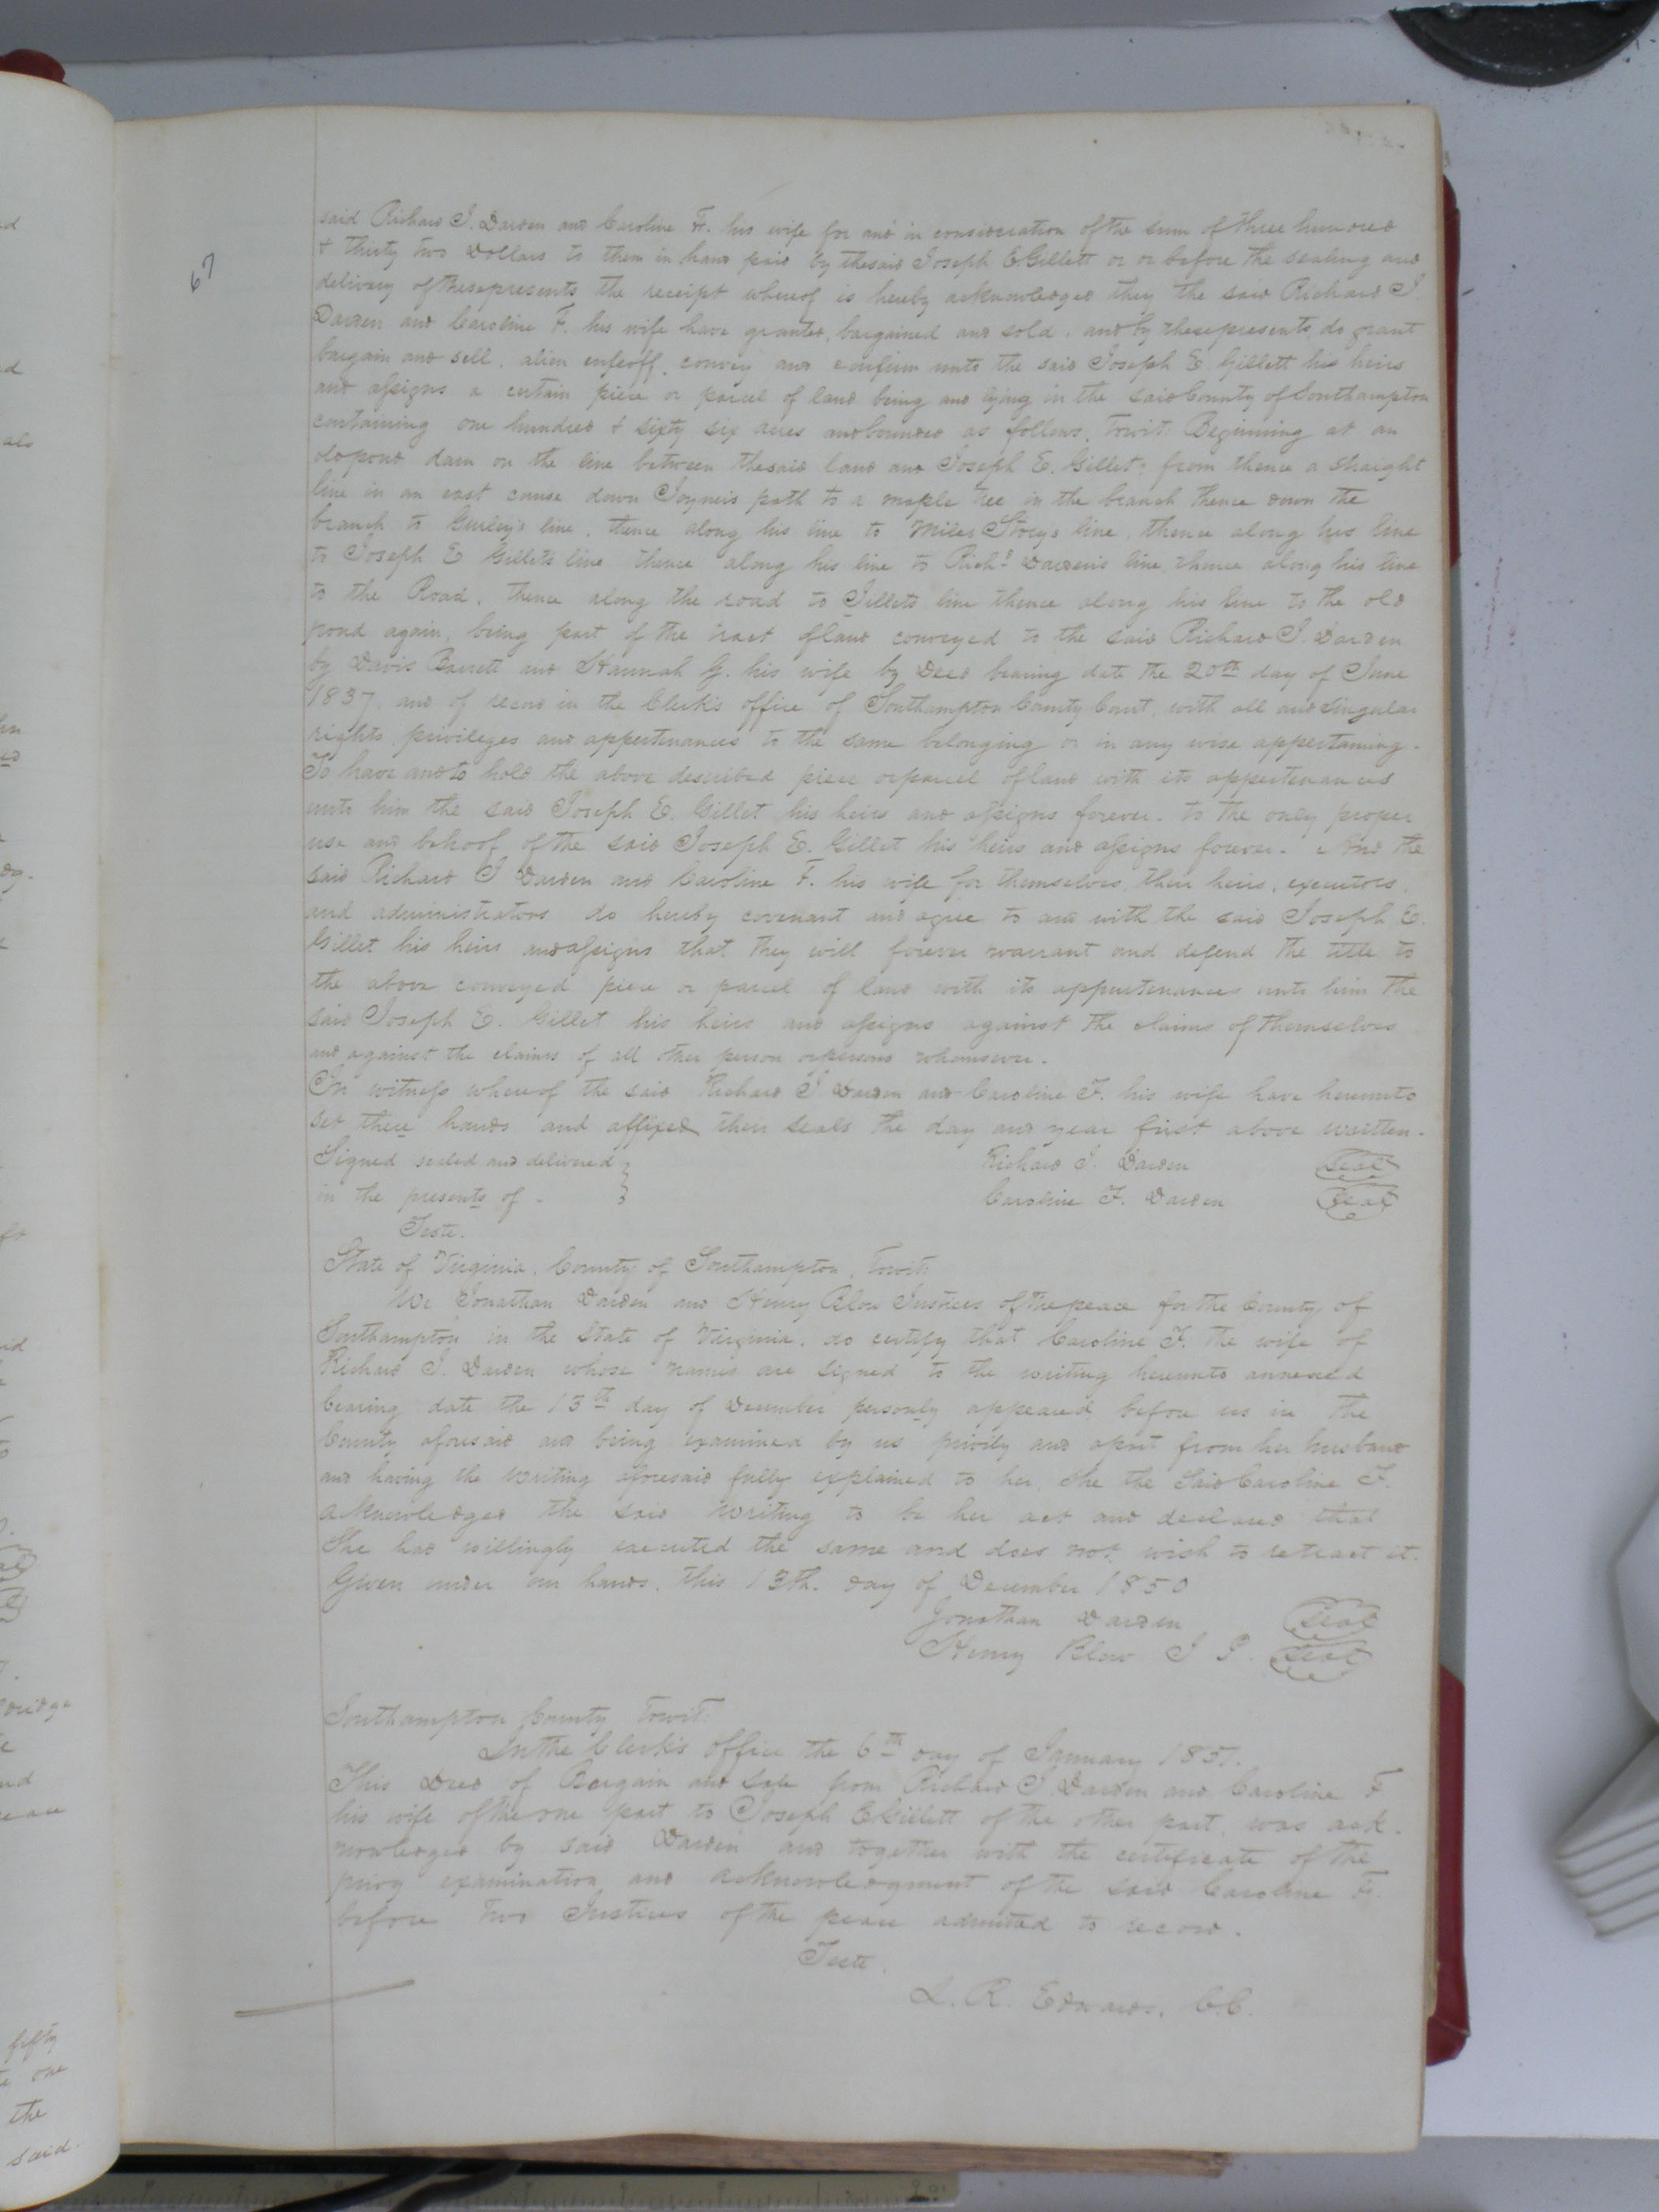 67
said Richard J. Darden and Caroline F. his wife for and in consideration of the sum of three hundred
& thirty two Dollars to them in hand paid by the said Joseph E. Gillett or or before the sealing and
delivery of these presents the receipt whereof is hereby acknowledged they the said Richard J.
Darden and Caroline F. his wife have granted, bargained and sold, and by these presents do grant
bargain and sell, alien enfeoff, convey and confirm unto the said Joseph E. Gillett his heirs
and assigns a certain piece or parcel of land being and lying in the said County of Southampton
containing one hundred & sixty six acres and bounded as follows, Towit: Beginning at an
old pond dam on the line between the said land and Joseph E. Gillet; from thence a straight
line in an east course down Joyner's path to a maple tree in the branch thence down the
branch to Gurley's line, thence along his line to Miles Story's line, thence along his line
to Joseph E Gillets line thence along his line to Richd Darden's line, thence along his line
to the Road, thence along the road to Gillets line thence along his line to the old
pond again, being part of the tract of land conveyed to the said Richard J. Darden
by Davis Barrett and Hannah G. his wife by Deed bearing date the 20th day of June
1837, and of record in the Clerk's office of Southampton County Court, with all and singular
rights, privileges and appertenances to the same belonging or in any wise appertaining.
To have and to hold the above described piece or parcel of land with its appertenances
unto him the said Joseph E. Gillet his heirs and assigns forever. to the only proper
use and behoof of the said Joseph E. Gillet his heirs and assigns forever. And the
said Richard J Darden and Caroline F. his wife for themselves, their heirs, executors,
and administrators do hereby covenant and agree to and with the said Joseph E.
Gillet his heirs and assigns that they will forever warrant and defend the title to
the above conveyed piece or parcel of land with its appurtenances unto him the
said Joseph E. Gillet his heirs and assigns against the claims of themselves
and against the claims of all other person or persons whomsoever.
In witness whereof the said Richard J Darden and Caroline F. his wife have hereunto
set there hands and affixed their seals the day and year first above written.
Signed sealed and delivered } Richard J. Darden Seal
in the presents of - } Caroline F. Darden Seal
Teste.
State of Virginia, County of Southampton, Towit;
We Jonathan Darden and Henry Blow Justices of the peace for the County of
Southampton in the State of Virginia, do certify that Caroline F. the wife of
Richard J. Darden whose names are signed to the writing hereunto annexed
bearing date the 13th day of December personly appeared before us in the
County aforesaid and being examined by us privily and apart from her husband
and having the writing aforesaid fully explained to her, she the Said Caroline F.
acknowledged the said writing to be her act and declared that
She had willingly executed the same and does not wish to retract it.
Given under our hands, this 13th. day of December 1850
Jonathan Darden Seal
Henry Blow J P. Seal
Southampton County Towit:
In the Clerk's office the 6th day of January 1851.
This Deed of Bargain and sale from Richard J. Darden and Caroline F
his wife of the one part to Joseph E Gillett of the other part, was ack-
nowledged by said Darden and together with the certificate of the
privy examination and acknowledgment of the said Caroline F.
before two Justices of the peace admitted to record.
Teste.
L. R. Edwards, C.C.